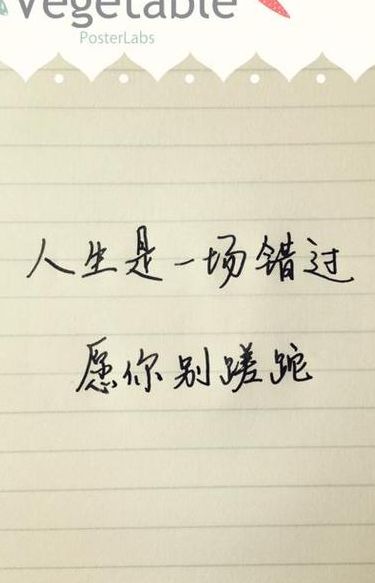 Vegetable
PosterLabs
人生是一场错过
愿你别蹉跎